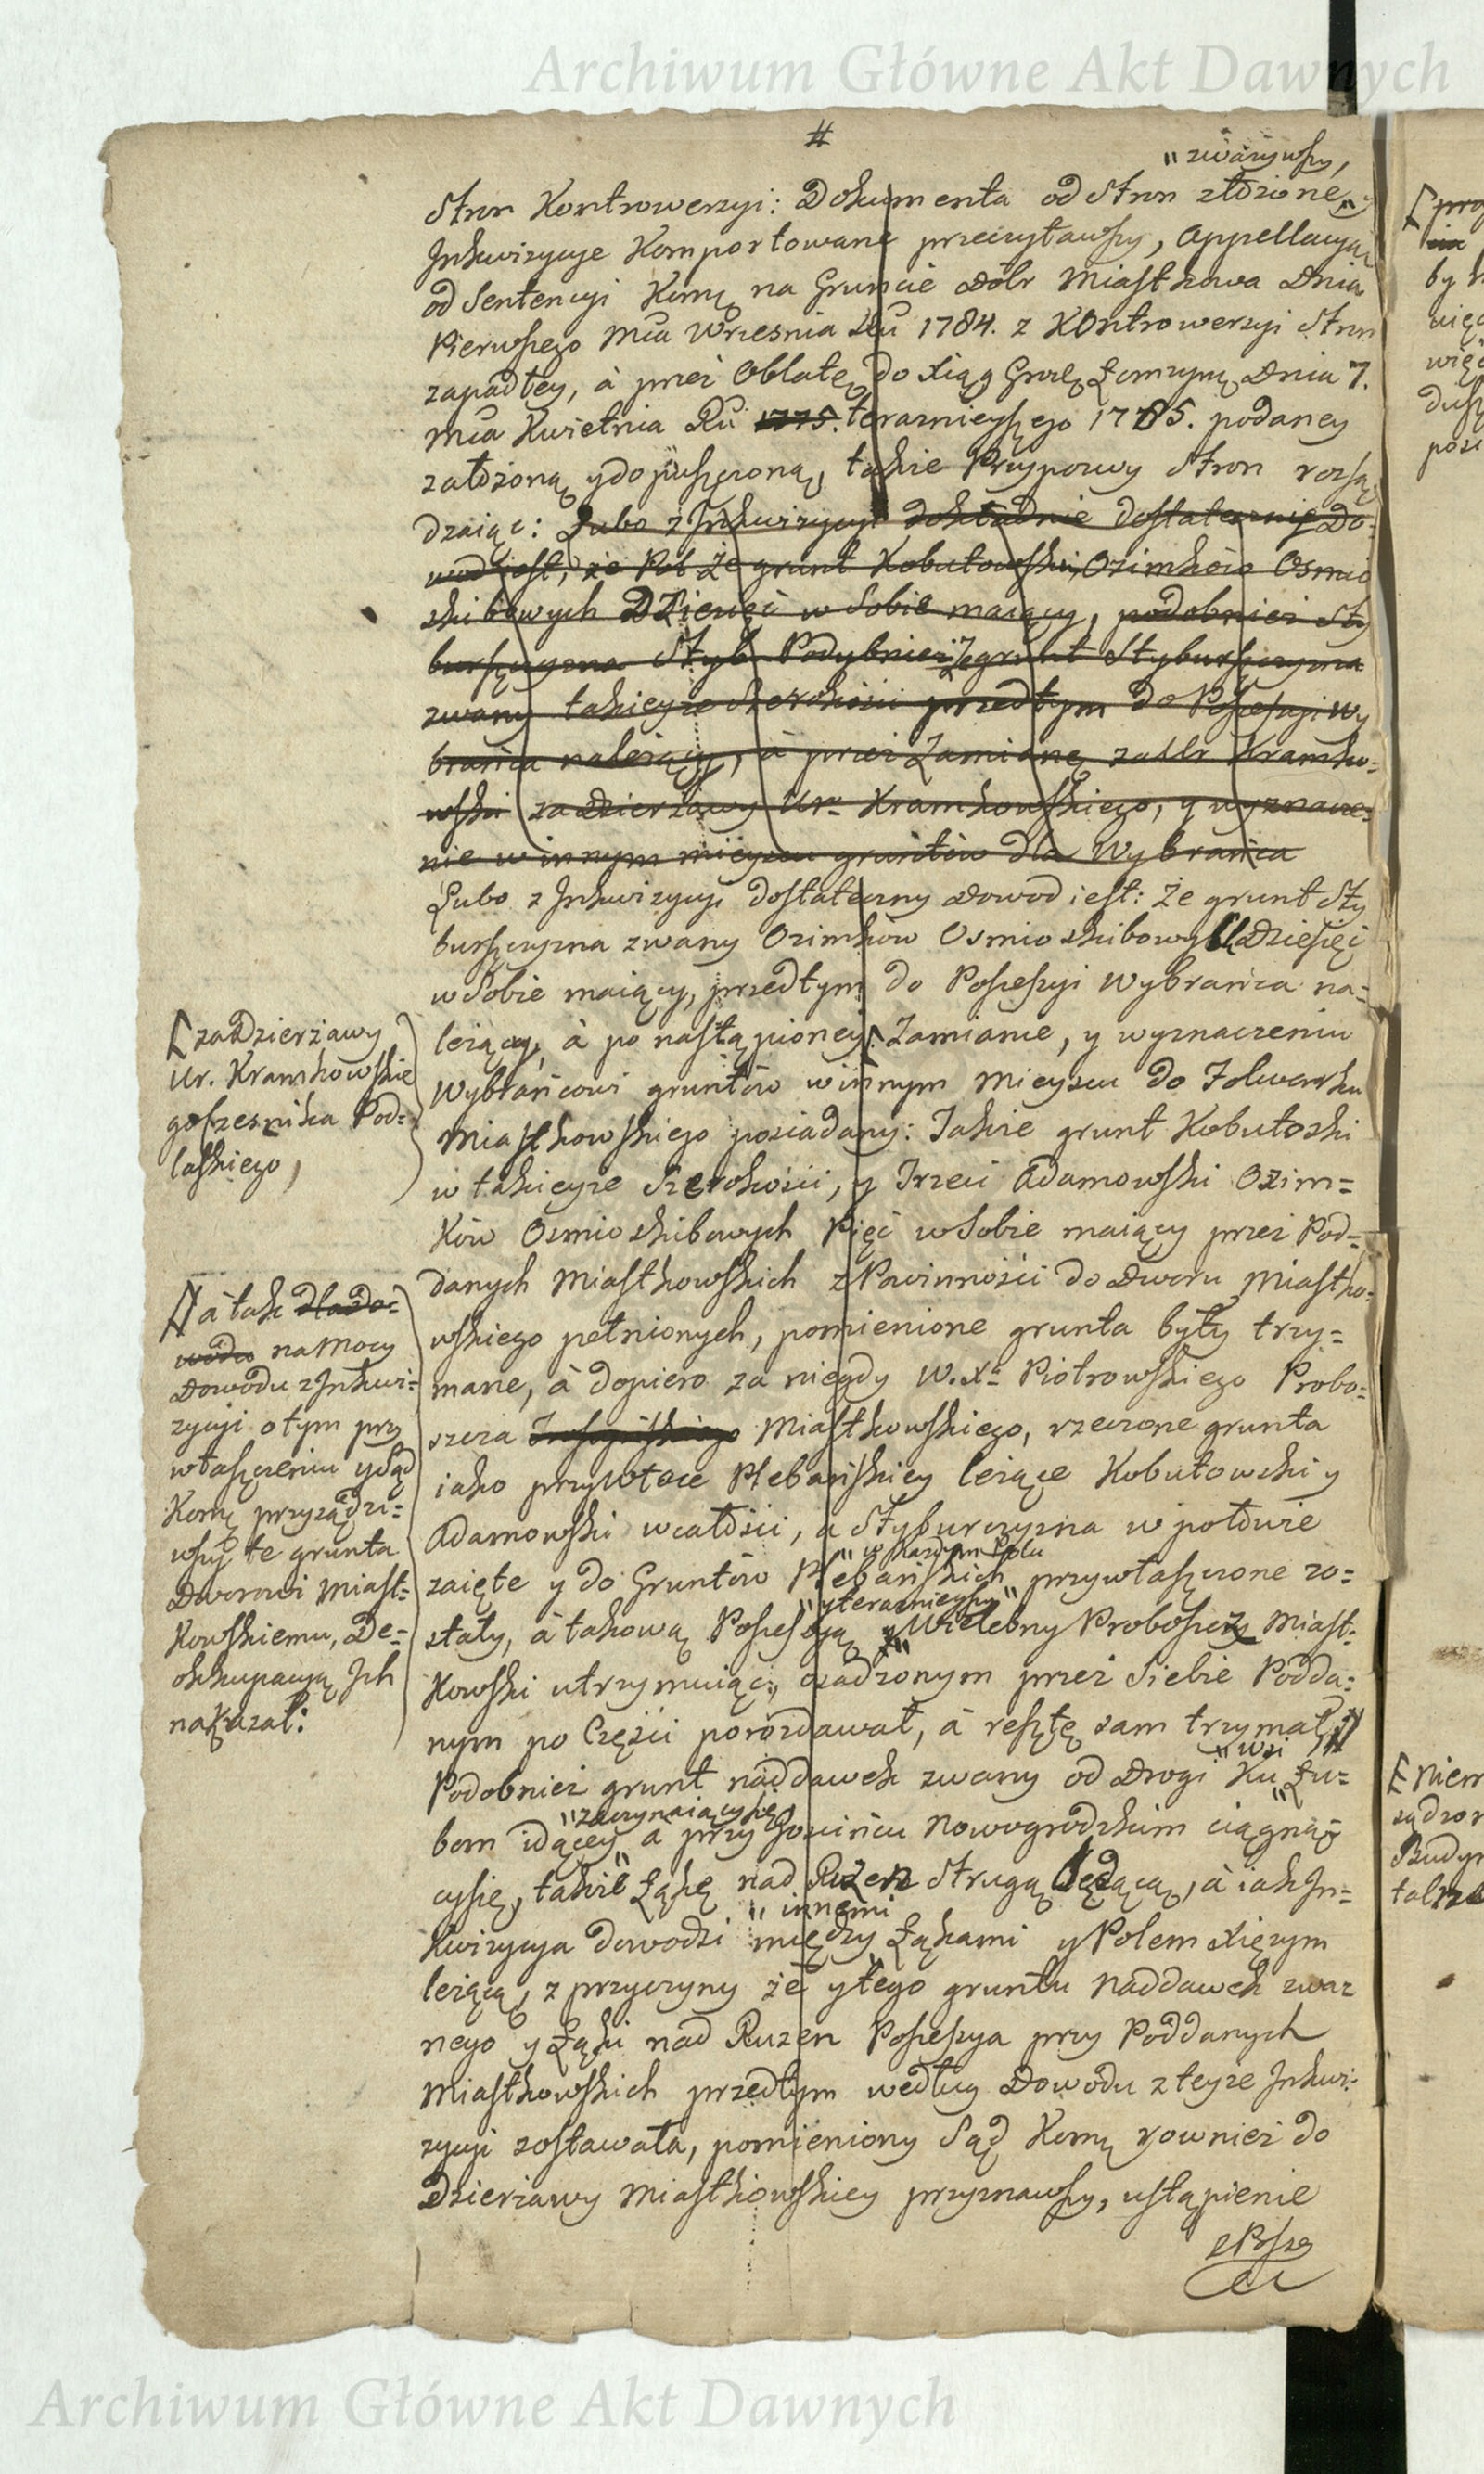 Archiwum Główne Akt Dawnych
#
" zwazywszy,
Stron Kontrowersyi: Dokumenta od Stron złożone,
Inkwizycye Komportowane przeczytawszy, Appellacyą
od Sentencyi Komę na Gruncie Dóbr Miastkowa Dnia
Pierwszego Mca Wrzesnia Ru 1784. z Kontrowersyi Stron
zapadłey, à przez Oblatę do Xiąg Grodz Łomzyn Dnia 7.
Mca Kwietnia Ru 1775. teraznieyszego 1785. podaney
założoną y dopuszczoną, także Przypowy Stron rozsą
dzaiąc: Lubo z Inkwizycyi dokładnie dostatecznie Do-
wod iest, że Pol Ze grunt Kobutowski, Ozimkow Osmio
skibowych Dziesięć w Sobie maiący, podobnież Sty
burszczyzna Styb Podobnież Ze grunt Styburszczyzna
zwany takieyze Szerokości przedtym do Possessyi Wy
brańca należący, à przez Zamianę za Ur Kramko-
wski za dzierżawy Ur. Kramkowskiego, y wyznacze-
nie w innym mieyscu gruntów dla Wybrańca
Lubo z Inkwizycyi dostateczny Dowod iest: Ze grunt Sty
burszczyzna zwany Ozimków Osmio skibowych Dziesięć
w Sobie maiący, przedtym do Possessyi Wybrańca na-
leżący, à po nastąpioney [ Zamianie, y wyznaczeniu
Wybrańcowi gruntów w innym Mieyscu do Folwarku
Miastkowskiego posiadany: Takze grunt Kobutoski
w takieyze Szerokości, y Trzeci Adamowski Ozim=
Ków Osmio skibowych Pięć w Sobie maiący przez Pod=
danych Miastkowskich z Powinności do Dworu Miastko-
wskiego pełnionych, pomienione grunta były trzy=
mane, à dopiero za niegdy W. Xa Piotrowskiego Probo-
szcza Miastkowskiego, rzeczone grunta
iako przy Włoce Plebańskiey leżące Kobutowski y
Adamowski w całości, a Styburczyzna w połowie
" w Kazdym Polu
zaięte y do Gruntów Plebańskich przywłaszczone zo=
" y teraznieyszy "
stały, à takową Possessyą Wielebny Proboszcz Miast-
Kowski utrzymuiąc, osadzonym przez Siebie Podda-
nym po Części porozdawał, à resztę sam trzymał; //
" wsi
Podobnież grunt naddawek zwany od Drogi Ku Łu=
" zaczynaiący się
bom idącey à przy Gościńcu Nowogrodzkim ciągnąc
cy się, także Łąkę nad Ruzen Strugą będącą, à iak In=
" innemi
kwizycya dowodzi między Łąkami y Polem Xiężym
leżącą, z przyczyny że y tego gruntu Naddawek zwa-
nego y Łąki nad Ruzen Possessya przy Poddanych
Miastkowskich przedtym według Dowodu z teyze Inkwi-
zycyi zostawała, pomieniony Sąd Komę rownież do
Dzierżawy Miastkowskiey przyznawszy, ustąpienie
[ za Dzierżawy
Ur. Kramkowskie
go Czesnika Pod=
laskiego,
// à tak dla do=
wodu na Mocy
Dowodu z Inkwi-
zycyi o tym przy
właszczeniu y Sąd
Komę przysądzi=
wszy te grunta
Dworowi Miast-
Kowskiemu, De=
okkupacyą Ich
nakazał:
Archiwum Główne Akt Dawnych